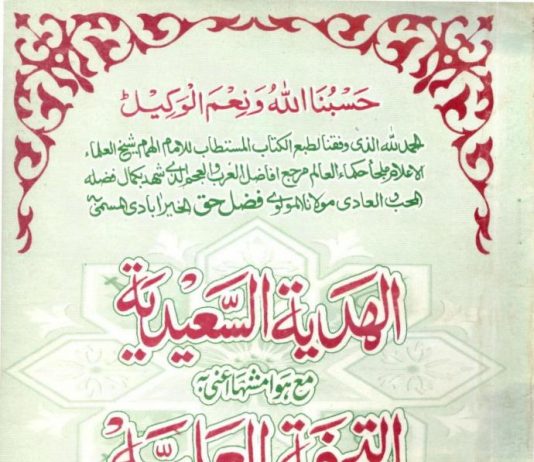 حَسْبُنَا اللّٰهُ وَنِعْمَ الْوَكِيْلُ
الحمد لله الذى وفقنا لطبع الكتاب المستطاب للامام الهمام شيخ العلماء
الاعلام ملجأ حكماء العالم مرجع افاضل العرب والعجم الذى شهد بكمال فضله
المحب والعادى مولانا المولوى فضل حق الخيرابادى المسمى بـ
الهَدية السَّعيْدية
مع هوامشها اعنى بـ
التحفة العلية